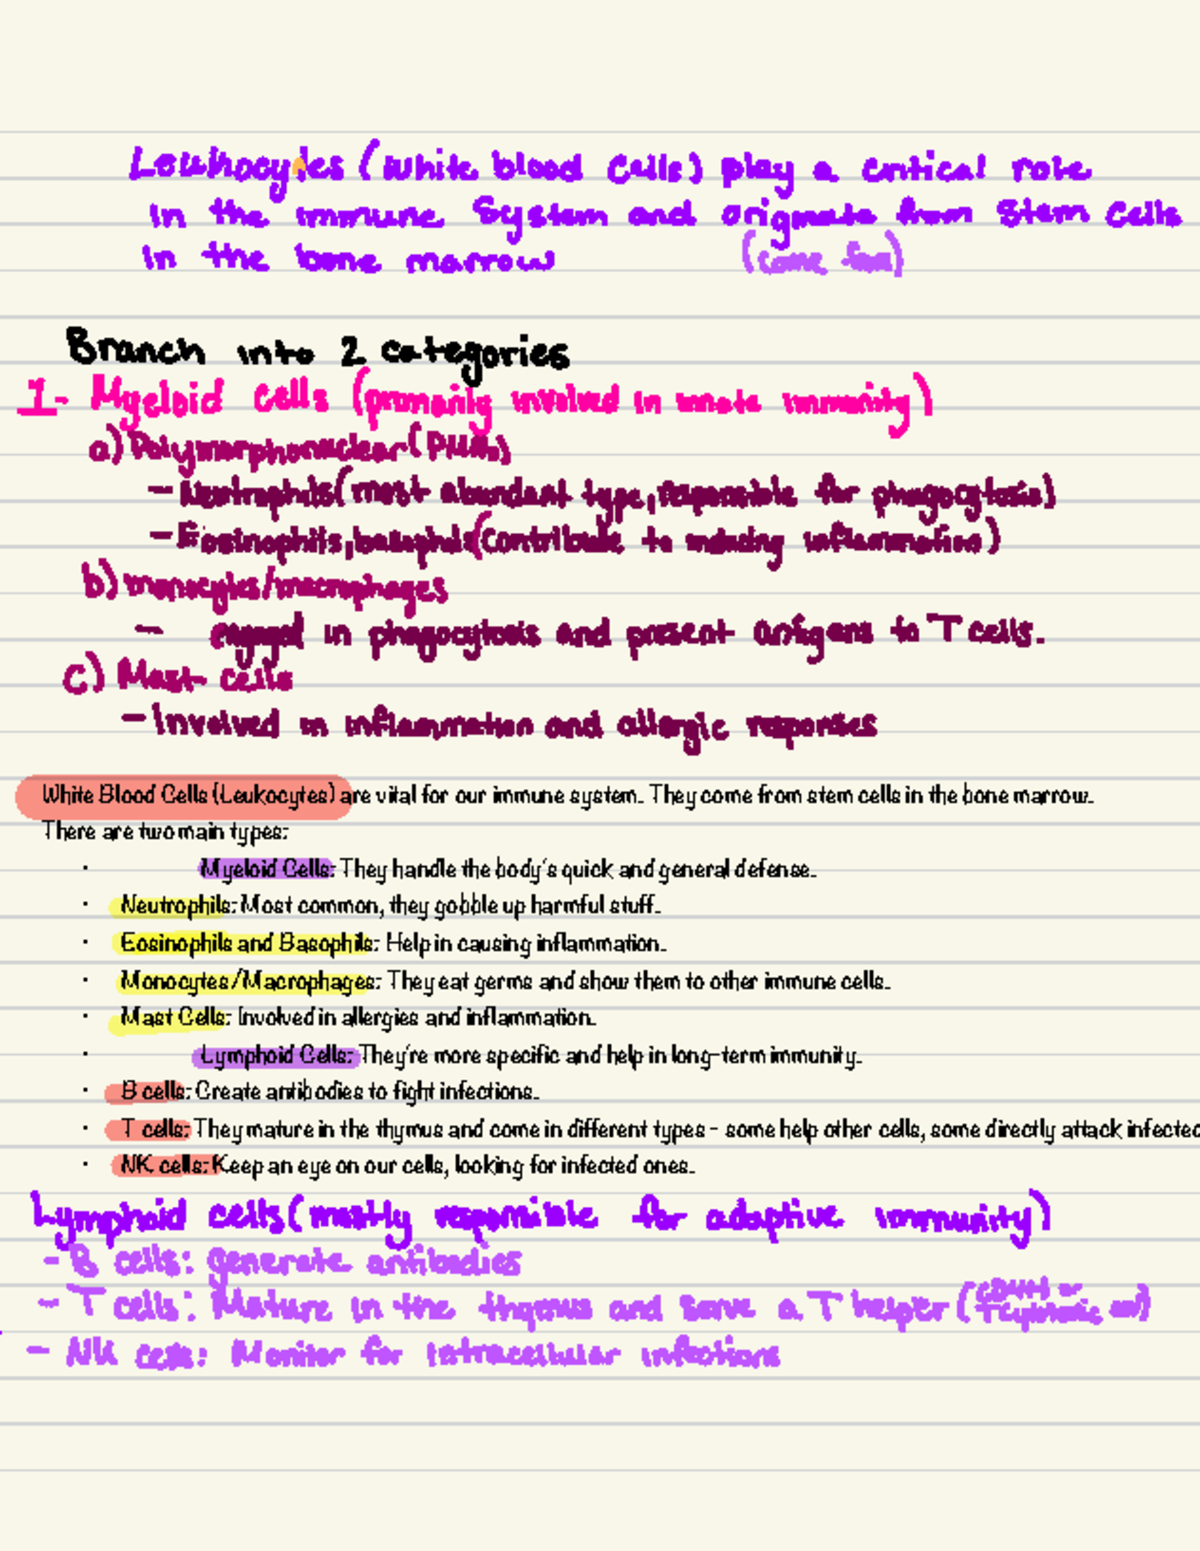 Leukocytes (white blood cells) play a critical role
in the immune system and originate from stem cells
in the bone marrow (come from)
Branch into 2 categories
1- Myeloid cells (primarily involved in innate immunity)
a) Polymorphonuclear (PMNs)
- Neutrophils (most abundant type, responsible for phagocytosis)
- Eosinophils, basophils (contribute to inducing inflammation)
b) monocytes/macrophages
- engaged in phagocytosis and present antigens to T cells.
c) Mast cells
- Involved in inflammation and allergic responses
White Blood Cells (Leukocytes) are vital for our immune system. They come from stem cells in the bone marrow.
There are two main types:
· Myeloid Cells: They handle the body's quick and general defense.
· Neutrophils: Most common, they gobble up harmful stuff.
· Eosinophils and Basophils: Help in causing inflammation.
· Monocytes/Macrophages: They eat germs and show them to other immune cells.
· Mast Cells: Involved in allergies and inflammation.
· Lymphoid Cells: They're more specific and help in long-term immunity.
· B cells: Create antibodies to fight infections.
· T cells: They mature in the thymus and come in different types - some help other cells, some directly attack infected
· NK cells: Keep an eye on our cells, looking for infected ones.
Lymphoid cells (mostly responsible for adaptive immunity)
- B cells: generate antibodies
- T cells: Mature in the thymus and serve a T helper (
- NK cells: Monitor for intracellular infections